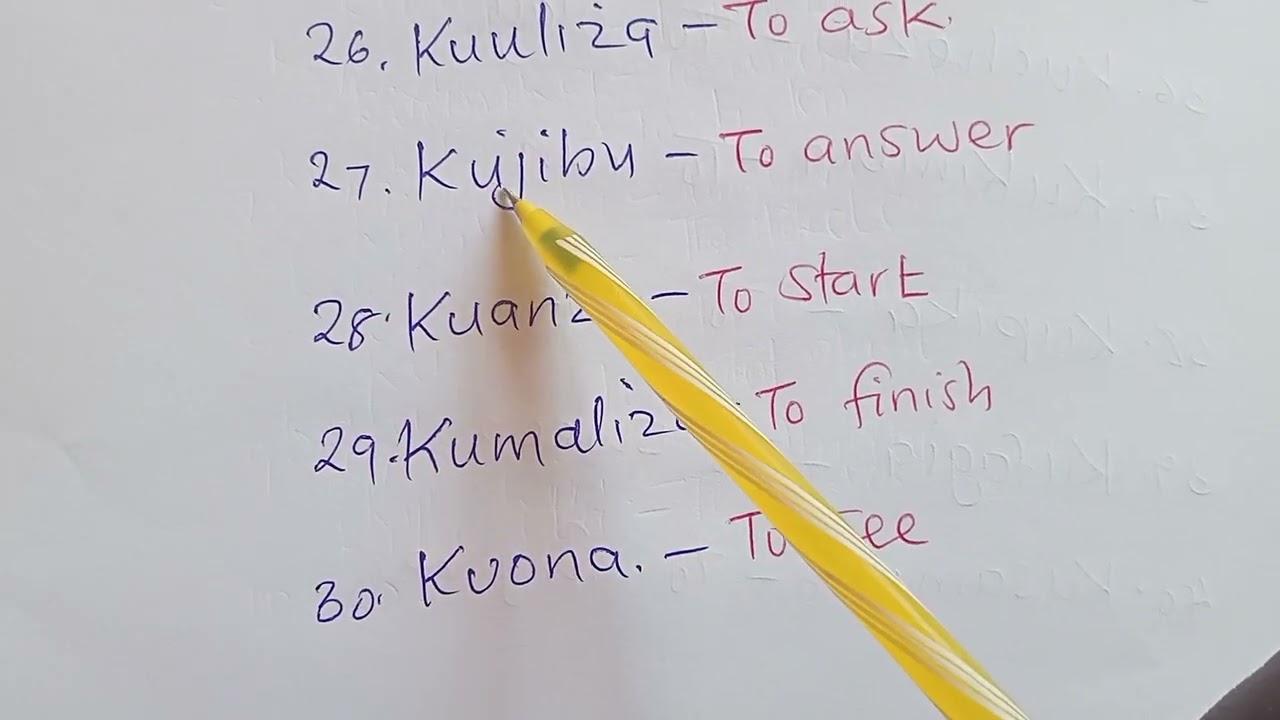 26. Kuuliza - To ask.
27. Kujibu - To answer
28. Kuanz - To start
29. Kumaliz - To finish
30. Kuona. - To see